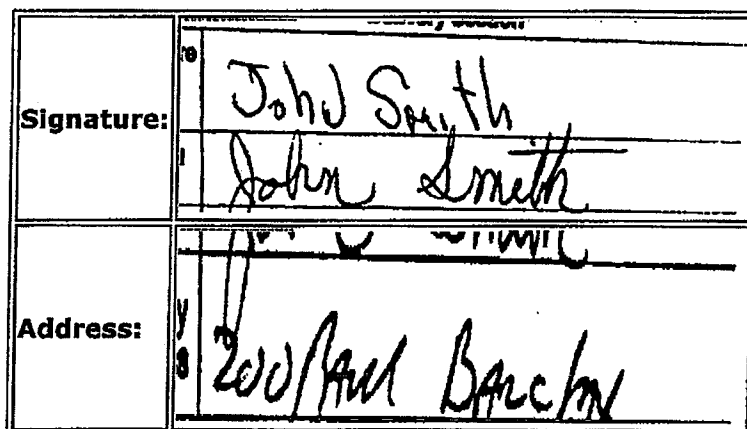 Signature:
JohN Smith
John Smith
Address:
200 PAul BArclay